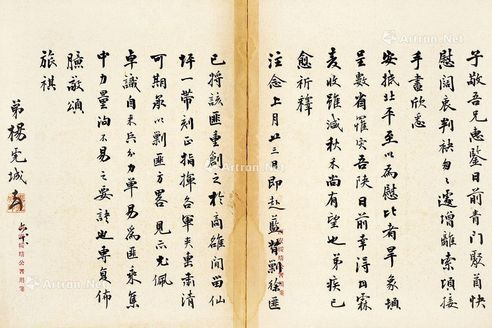 子敬吾兄惠鑒日前青门聚首快
慰阔衷判袂匆匆遽增離索頃接
手書欣悉
安抵北平至以為慰比者旱象頃
呈數省罹災吾陕日前幸得霖
麦收雖減秋禾尚有望也弟疾已
愈祈釋
注念上月廿三日即赴藍督剿徐匪
已將該匪重創之於商雒間留仙
坪一帶刻正指揮各軍夾擊肅清
可期承以剿匪方畧見示尤佩
卓識自来兵分力單易為匪乘集
中力量洵不易之要訣也專复佈
臆敬頌
旅祺
弟楊虎城
Artron.Net